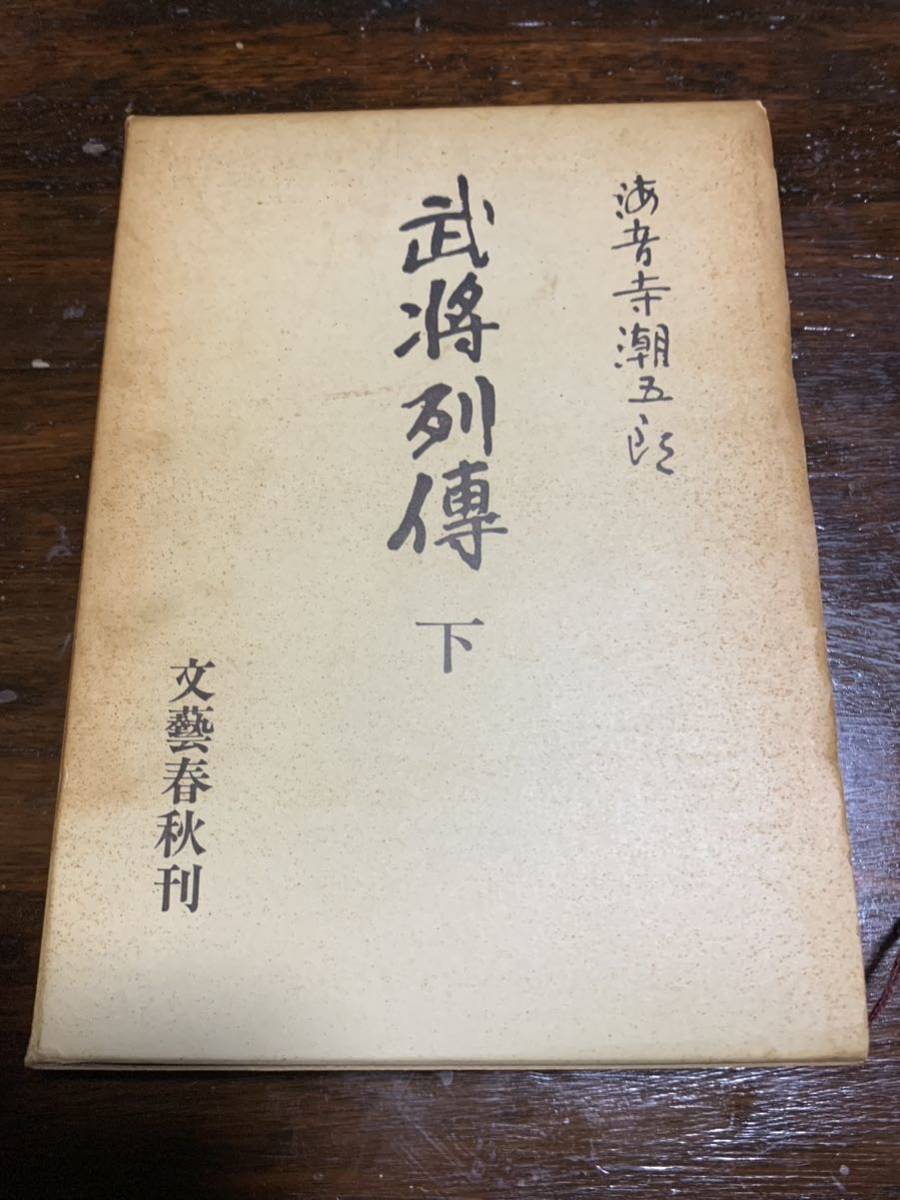 海音寺潮五郎
武將列傳 下
文藝春秋刊